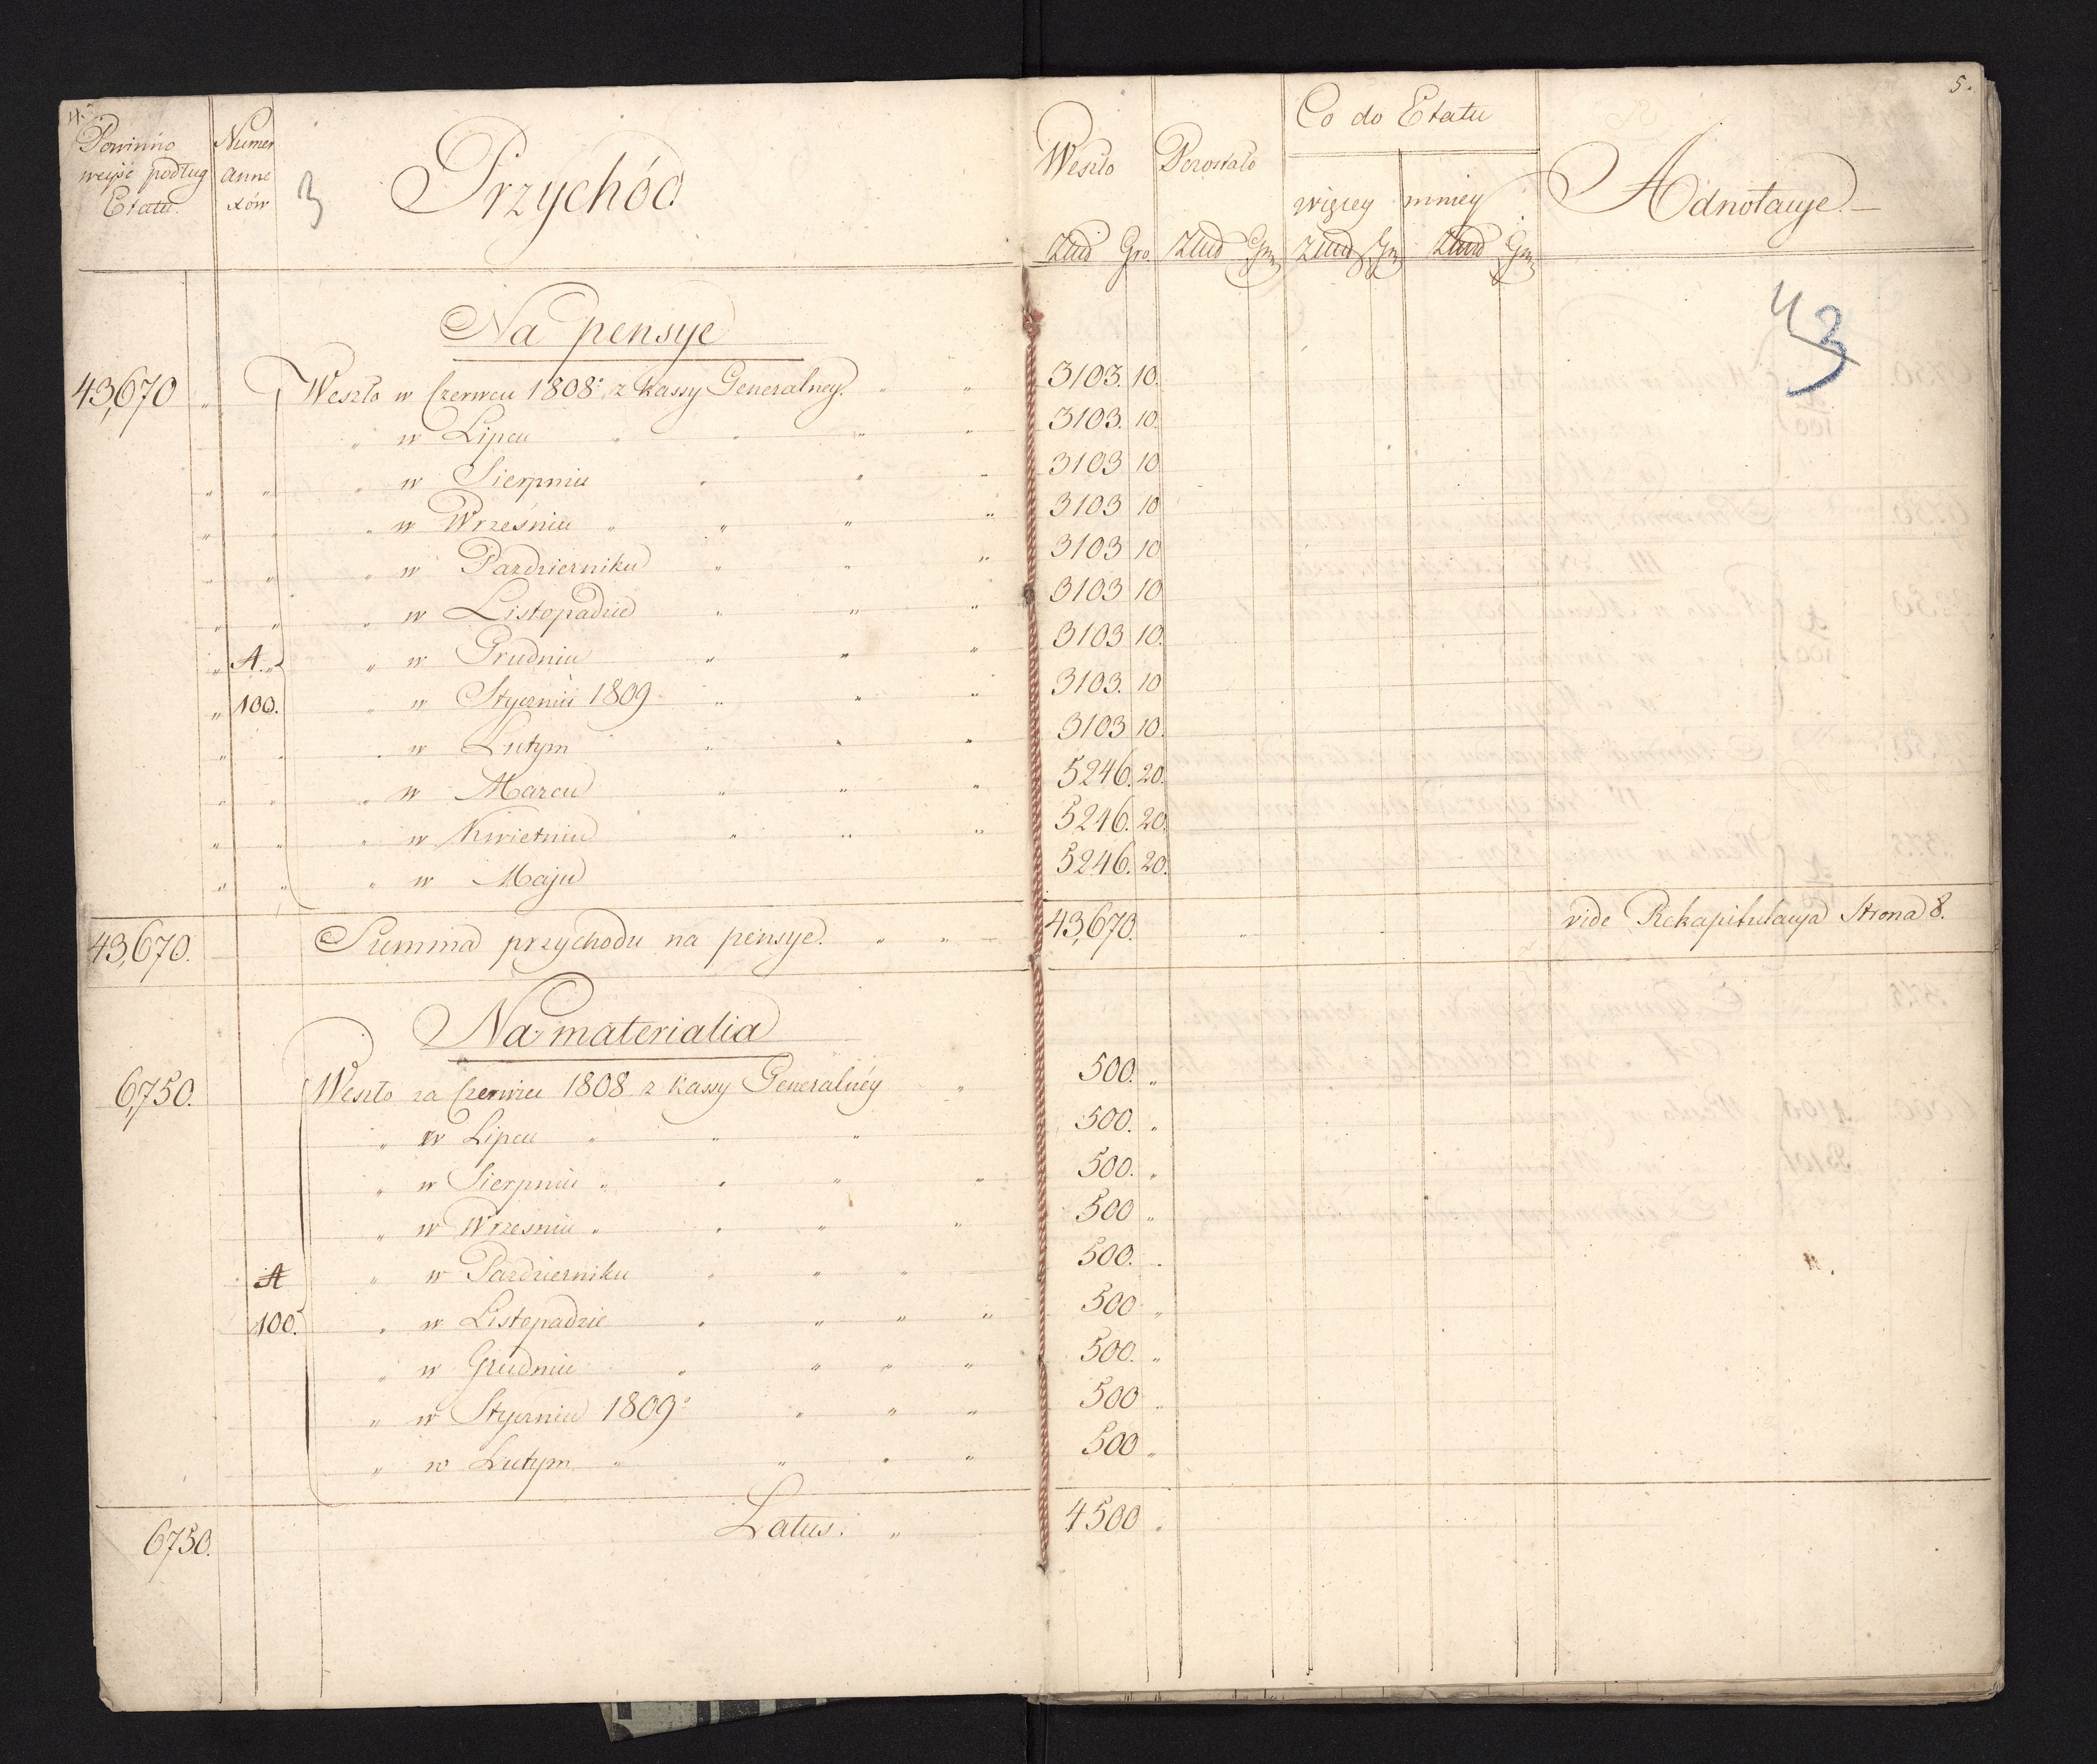 4.
Powinno
weyść podług
Etatu.
Numer
anne
xów
3
Przychód
Weszło
Pozostało
Co do Etatu
więcey
mniey
Adnotacye.
5.
Złłd Gro. Złłd Gro Złłd Gro Złłd Gro
43
Na pensye
43,670 „ Weszło w Czerwcu 1808 z kassy Generalney. „ „ 3103. 10.
„ w Lipcu „ „ „ „ 3103. 10.
„ „ „ w Sierpniu „ „ „ 3103 10
„ „ „ w Wrześniu „ „ „ „ 3103 10
„ „ „ w Pazdzierniku „ „ „ 3103 10
„ „ „ w Listopadzie „ „ „ 3103 10
„ A. „ „ w Grudniu „ „ „ 3103 10.
„ 100. „ w Styczniu 1809 „ „ „ 3103. 10
„ „ „ w Lutym „ „ „ 3103 10.
„ „ „ w Marcu „ „ „ 5246. 20.
„ „ „ w Kwietniu „ „ „ 5246. 20.
„ „ „ w Maju 5246. 20.
43,670. Summa przychodu na pensye. „ „ 43,670. „ vide Rekapitulacya Strona 8.
Na materialia
6,750. Weszło za Czerwiec 1808 z kassy Generalnéy „ 500. „
„ w Lipcu „ „ „ 500. „
„ w Sierpniu „ „ „ „ 500. „
„ w Wrzesniu „ „ „ „ 500 „
A „ w Pazdzierniku „ „ „ 500. „
100. „ w Listopadzie „ „ „ „ 500 „
„ w Grudniu „ „ „ „ 500. „
„ w Styczniu 1809 „ „ „ 500 „
„ w Lutym „ „ „ „ 500 „
6750. Latus. „ 4500 „